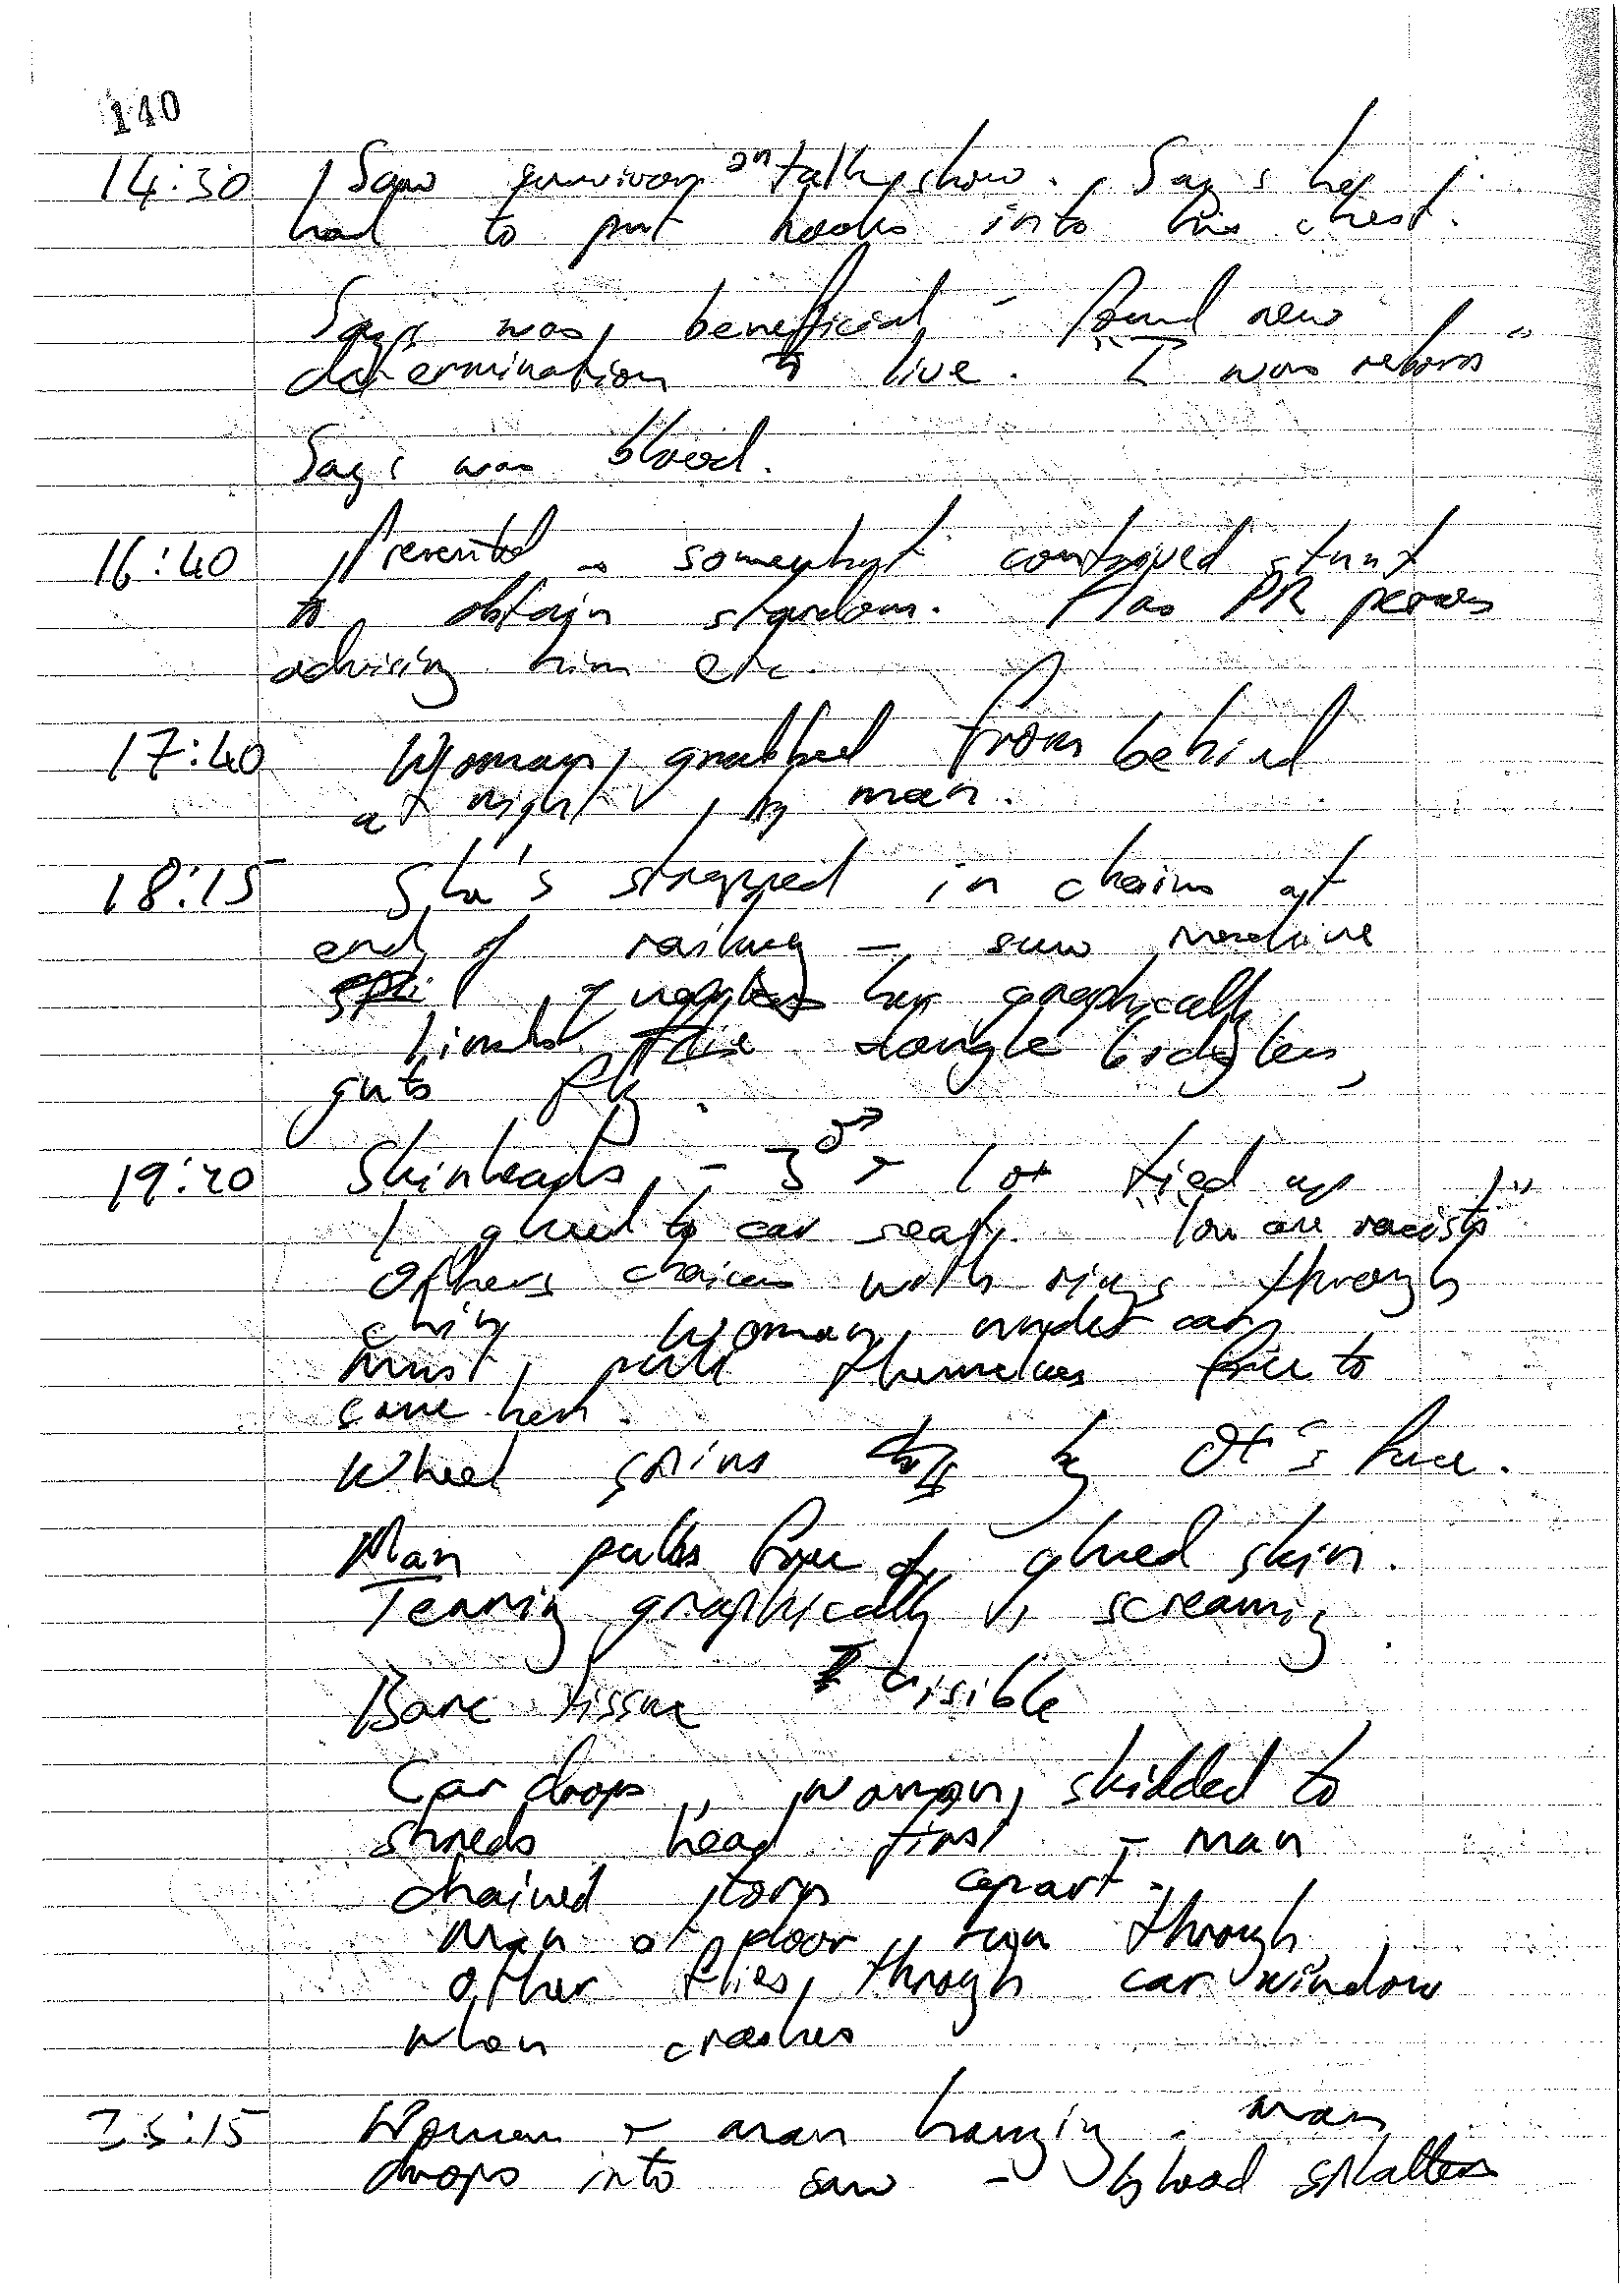 140
14:30 Saw survivor on talk show. Says he
had to put hooks into his chest.
Says was beneficial - found new
determination to live. "I was reborn"
Says was blood.
16:40 Presented - somewhat contrived stunt
to obtain stardom. Has PR person
advising him etc.
17:40 Woman grabbed from behind
at night by man.
18:15 She's strapped in chains at
end of railway - saw machine
her graphically
limbs dangle bodyless,
guts fly.
19:20 Skinheads - 3♂ + 1 o+ tied up
1 glued to car seat. "You are racists"
Others chains with rings through
chin woman under car
must pull themselves free to
save her.
Wheel spins by O+'s face.
Man pulls free of glued skin.
Tearing graphically, screaming
Bare tissue visible
Car drops, woman skidded to
shreds head first - man
chained torn apart.
Man at door run through
other flies through car window
when crashes
Woman + man hanging - man
drops into saw - blood splatters